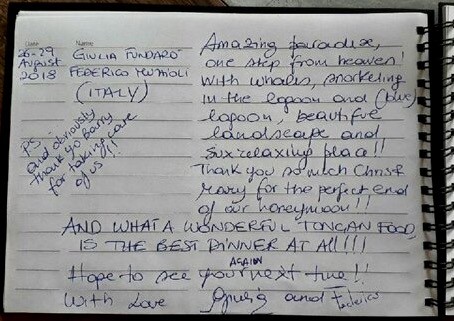 Date Name
26-29 August 2018
GIULIA FUNDARÓ
FEDERICO
(ITALY)
PS:
and obviously
thank yo Barry
for taking care
of us!!!
Amazing paradise,
one step from heaven!
With whales, snorkeling
in the lagoon and (blue)
lagoon, beautiful
landscape and
relaxing place!!
Thank you so much Chris&
Mary for the perfect end
of our honeymoon!!
AND WHAT A WONDERFUL TONGAN FOOD,
IS THE BEST DINNER AT ALL!!!
Hope to see you AGAIN next time!!
With Love Giulia and Federico